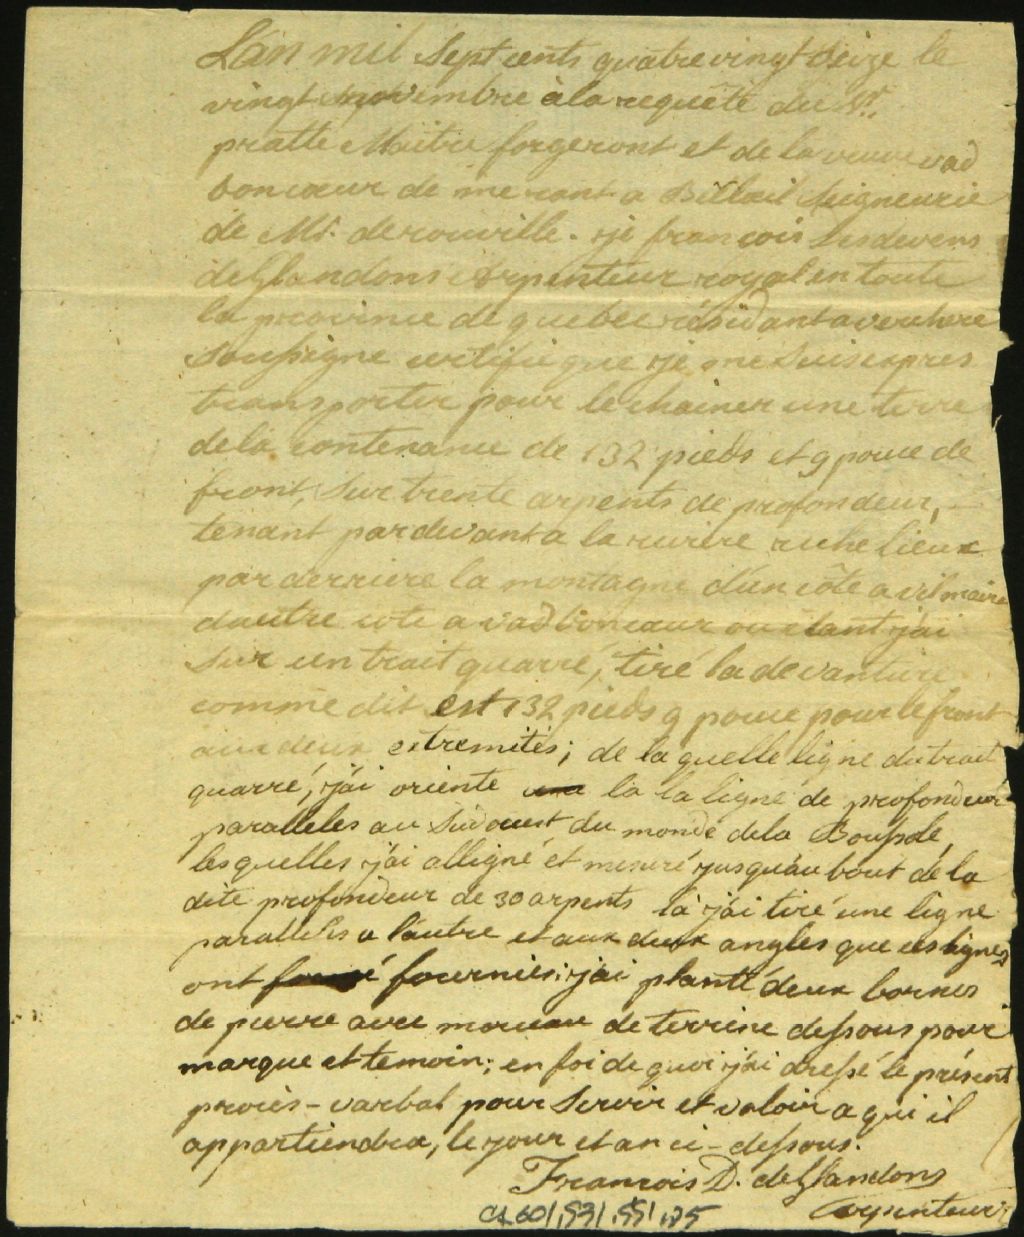 L'an mil sept cents quatre vingt seize le
vingt novembre à la requête du Sr.
pratte Maitre forgeront et de la veuve vad
boncœur de me rant a Billoeil seigneurie
de Mr. de rouville. je francois Desdevens
deglandons Arpenteur royal en toute
la province de quebec résidant a verchere
Soussigne certifie que je me suis expres
transporter pour le chainer une terre
de la contenance de 132 pieds et 9 pouce de
front, sur trente arpents de profondeur,
tenant par devant a la rivire richelieux
par derriere la montagne d'un côte a
dautre cote a vadboncœur ou etant j'ai
sur un trait quarré, tiré la devanture
comme dit est 132 pieds 9 pouce pour le front
aux deux extremités; de la quelle ligne du trait
quarré, j'ai oriente la la ligne de profondeur
paralleles au Sudouest du monde de la Boussole,
lesquelles j'ai alligné et mesuré jusquau bout de la
dite profondeur de 30 arpents là j'ai tiré une ligne
parallelis a l'autre et aux deux angles que ces lignes
ont fournies; j'ai planté deux bornes
de pierre avec morceau de terrine dessous pour
marque et temoin; en foi de quoi j'ai dressé le présent
procès-varbal pour servir et valoir a qui il
appartiendra, le jour et an ci-dessous.
Francois D. deglandons
Arpenteur